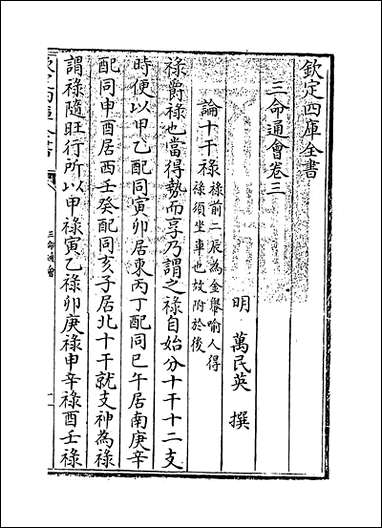 欽定四庫全書
三命通會卷三
明 萬民英 撰
論十干祿 祿前二辰為金轝喻人得
祿須坐車也故附於後
祿爵祿也當得勢而享乃謂之祿自始分十干十二支
時便以甲乙配同寅卯居東丙丁配同巳午居南庚辛
配同申酉居西壬癸配同亥子居北十干就支神為祿
謂祿隨旺行所以甲祿寅乙祿卯庚祿申辛祿酉壬祿
三命通會